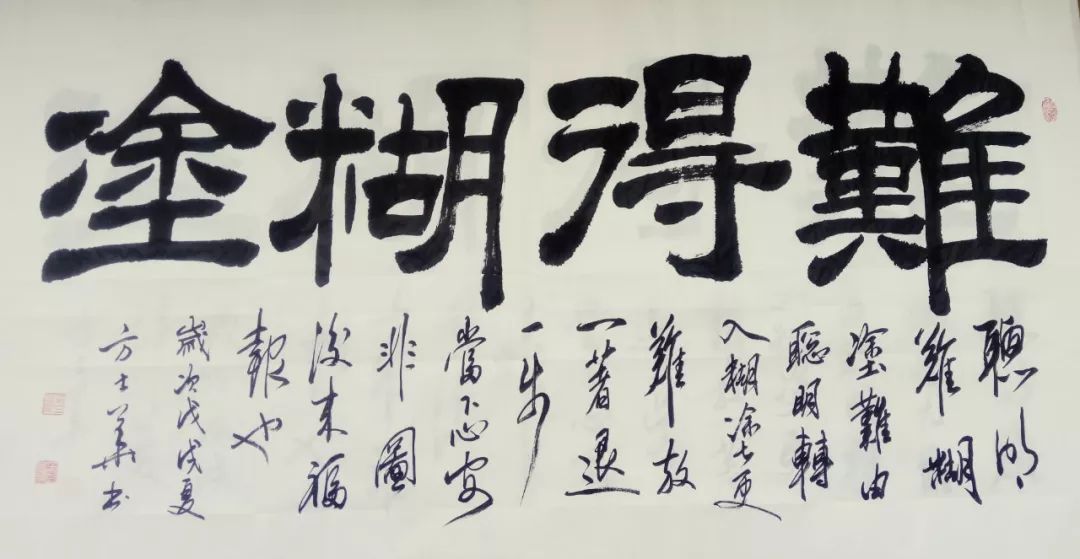 難得糊塗
聰明
難糊
塗難由
聰明轉
入糊塗更
難放
一著退
一步
當下心安
非圖
後來福
報也
歲次戊戌夏
方士華書